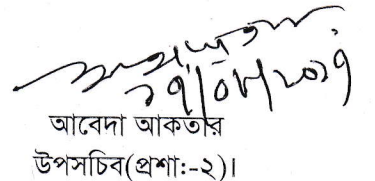 ২৭/০৮/২০১৭
আবেদা আকতার
উপসচিব(প্রশা:-২)।